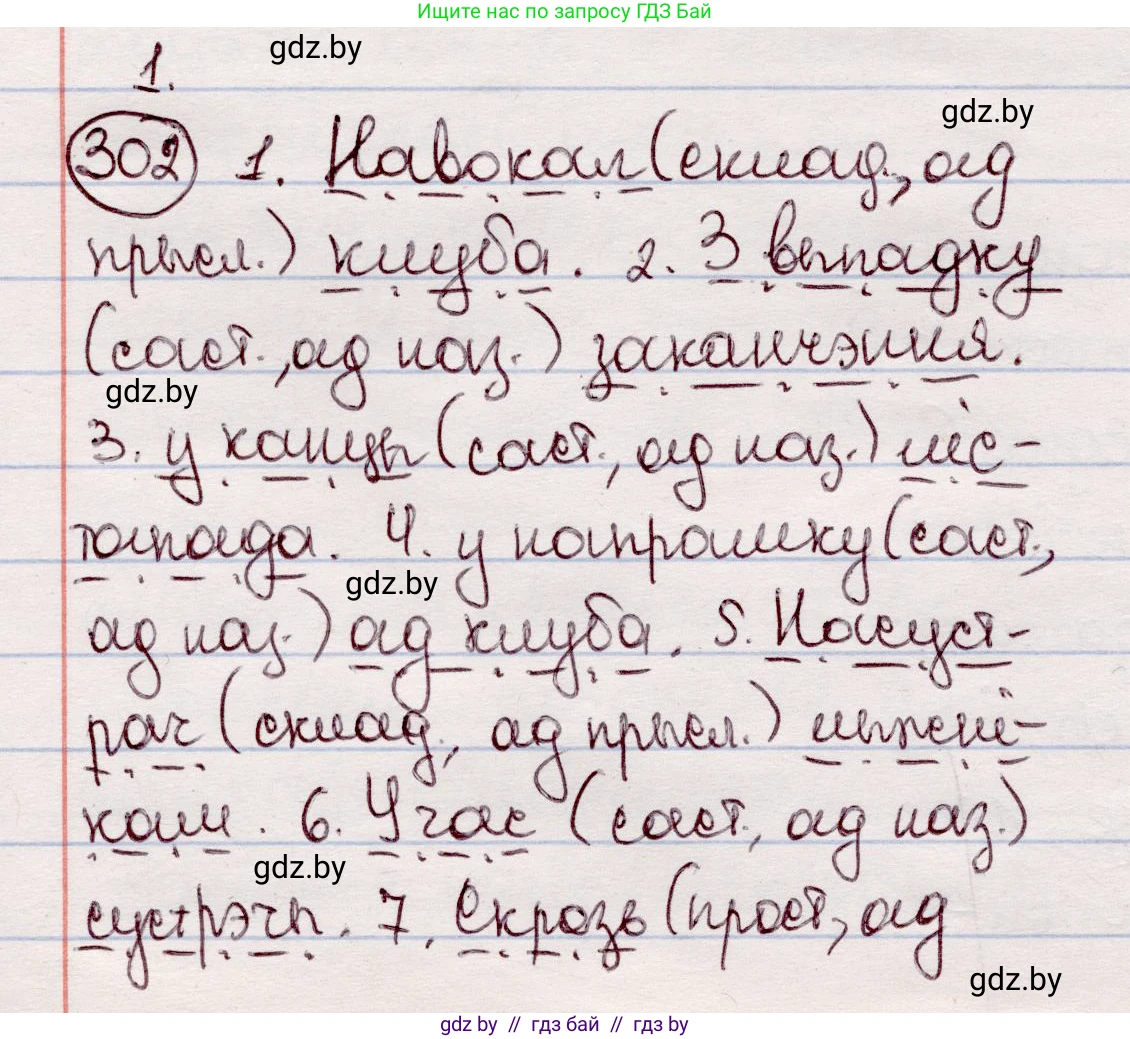 Ищите нас по запросу ГДЗ Бай
gdz.by
1.
gdz.by
302 1. Навокал (склад., ад
прысл.) клуба. 2. З выпадку
(саст., ад наз.) заканчэння.
gdz.by
3. у канцы (саст., ад наз.) ліс-
тапада. 4. у напрамку (саст.,
gdz.by
ад наз.) ад клуба. 5. Насуст-
рач (склад., ад прысл.) лыжні-
кам. 6. У час (саст., ад наз.)
gdz.by
сустрэчы. 7. Скрозь (прост., ад
gdz.by
gdz by // гдз бай // gdz by